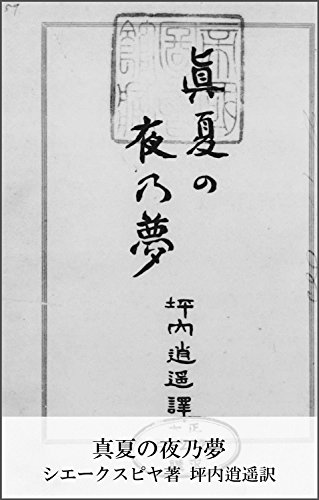 眞夏の
夜乃夢
坪內逍遥譯
真夏の夜乃夢
シエークスピヤ著 坪内逍遥訳